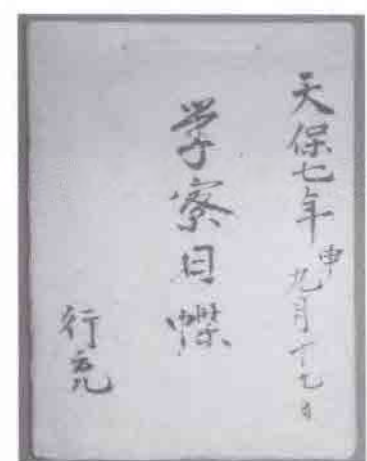 天保七年申九月十九日
学寮日牒
行